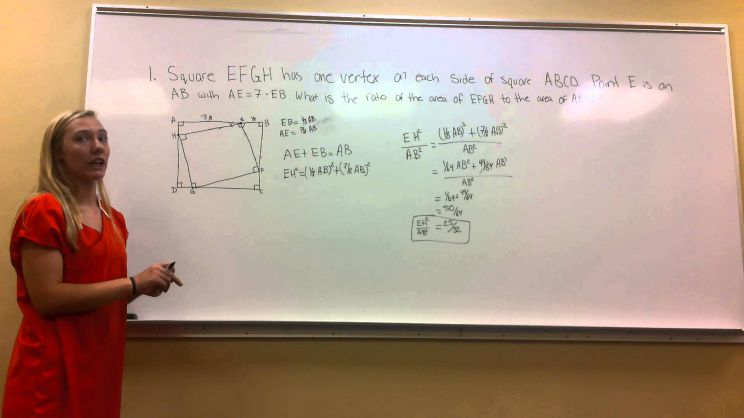 1. Square EFGH has one vertex on each side of square ABCD. Point E is on
AB with AE = 7 · EB. What is the ratio of the area of EFGH to the area of
A E B
H
F
D G C
EB = 1/8 AB
AE = 7/8 AB
AE + EB = AB
EH² = (1/8 AB)² + (7/8 AB)²
EH²/AB² = (1/8 AB)² + (7/8 AB)²/AB²
= 1/64 AB² + 49/64 AB²/AB²
= 1/64 + 49/64
= 50/64
EH²/AB² = 25/32